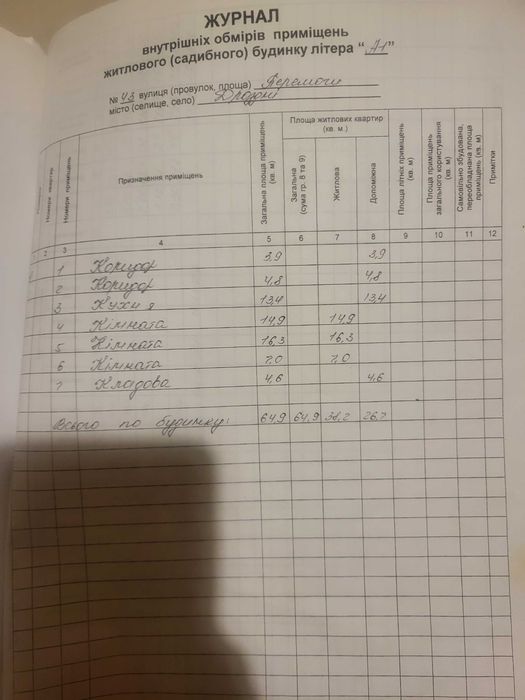 ЖУРНАЛ
внутрішніх обмірів приміщень
житлового (садибного) будинку літера “ А1 ”
№ 43 вулиця (провулок, площа) Перемоги
місто (селище, село)
Номери квартир
Номери приміщень
Призначення приміщень
Загальна площа приміщень (кв. м)
Площа житлових квартир (кв. м.)
Загальна (сума гр. 8 та 9)
Житлова
Допоміжна
Площа літніх приміщень (кв. м)
Площа приміщень загального користування (кв. м)
Самовільно збудована, переобладнана площа приміщень (кв. м)
Примітки
1 2 3 4 5 6 7 8 9 10 11 12
1 Коридор 3,9 3,9
2 Коридор 4,8 4,8
3 Кухня 13,4 13,4
4 Кімната 14,9 14,9
5 Кімната 16,3 16,3
6 Кімната 7,0 7,0
7 Кладова 4,6 4,6
Всього по будинку: 64,9 64,9 38,2 26,7